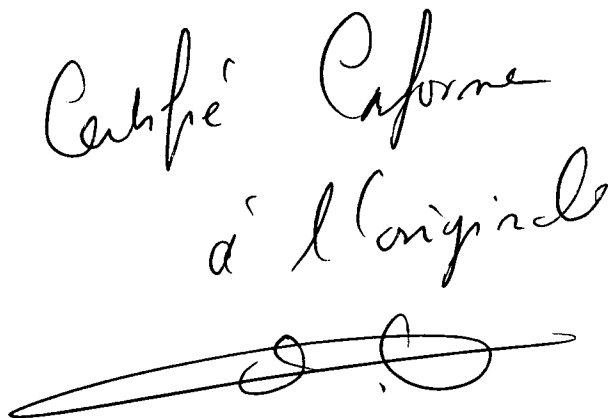 Certifié Conforme
à l'originale